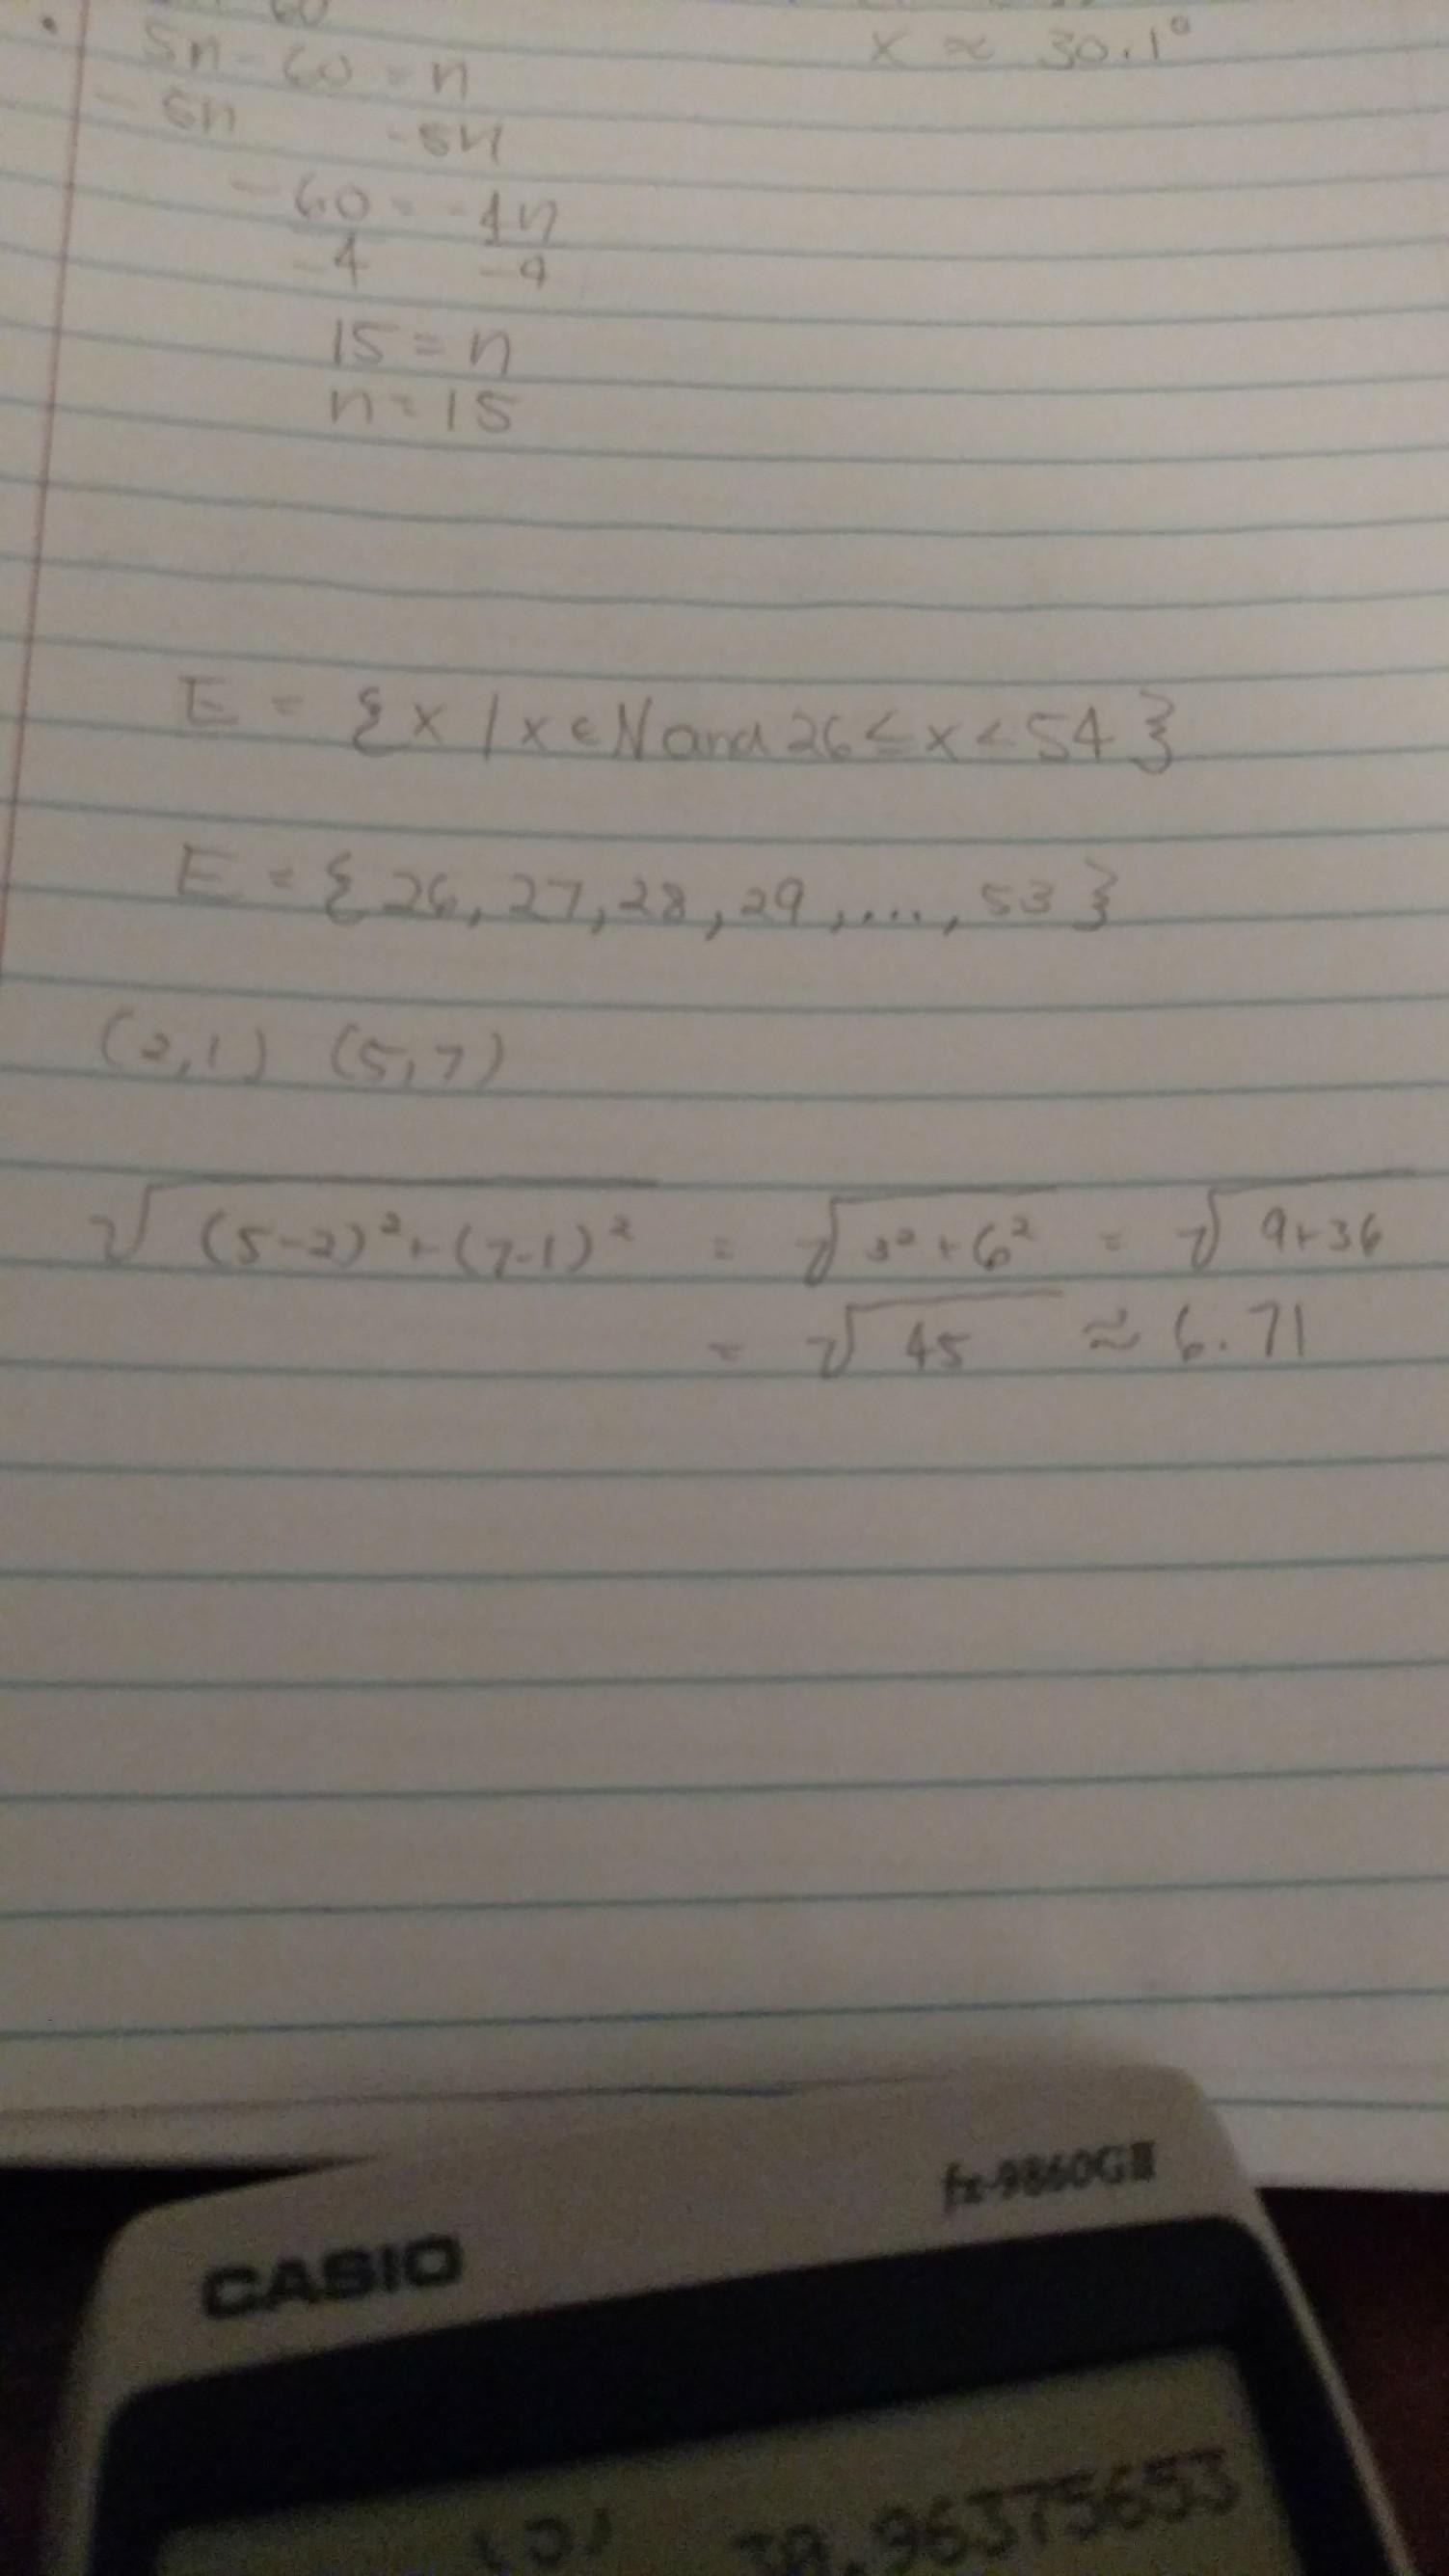 60
5n - 60 = n
x ≈ 30.1°
- 5n -5n
- 60 = -4n
-4 -4
15 = n
n = 15
E = {x / x ∈ N and 26 ≤ x < 54}
E = {26, 27, 28, 29, ..., 53}
(2,1) (5,7)
√(5-2)² + (7-1)² = √3² + 6² = √9+36
= √45 ≈ 6.71
fx-9860GII
CASIO
.96375653